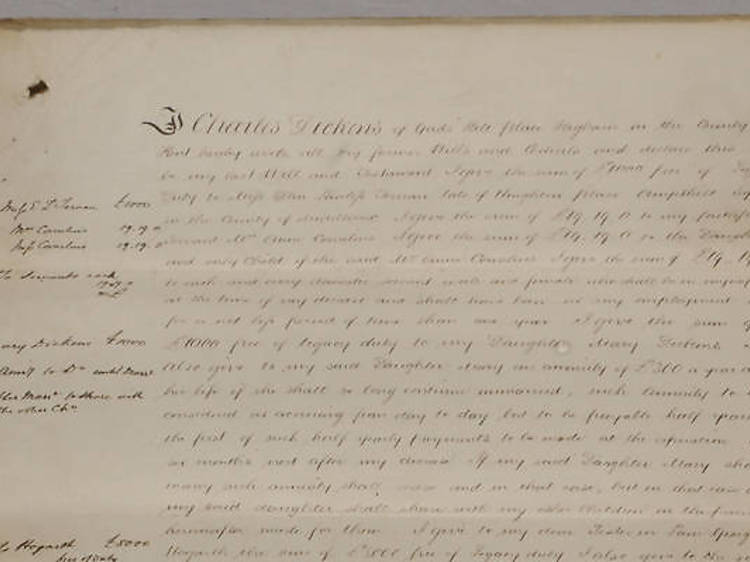 I Charles Dickens of Gads Hill Place Higham in the County
Kent hereby revoke all my former Wills and Codicils and declare this
be my last Will and Testament I give the sum of £1000 free of
Miss E L Ternan £1000
Duty to Miss Ellen Lawless Ternan late of Houghton Place Ampthill
Mrs Caroline 19.19.0
in the County of Middlesex I give the sum of £19. 19. 0 to my faithful
Miss Caroline 19.19.0
Servant Mrs Anne Cornelius I give the sum of £19. 19. 0 to the Daughter
and only Child of the said Mrs Anne Cornelius I give the sum of £19. 19
To Servants each
19.19.0
to each and every domestic servant male and female who shall be in my
at the time of my decease and shall have been in my employment
for a not less period of time than one year I give the sum of
Mary Dickens £1000
£1000 free of legacy duty to my Daughter Mary Dickens
until Marr
Also give to my said Daughter Mary an annuity of £300 a year
to share with
her life if she shall so long continue unmarried, such Annuity to
the other Chn
considered as accruing from day to day but to be payable half yearly
the first of such half yearly payments to be made at the expiration
six months next after my decease If my said Daughter Mary
marry such annuity shall cease and in that case, but in that case
my said daughter shall share with my other Children in the
hereinafter made for them I give to my dear Sister in Law
Hogarth £8000
free of Duty
Hogarth the sum of £8000 free of legacy duty I also give to the